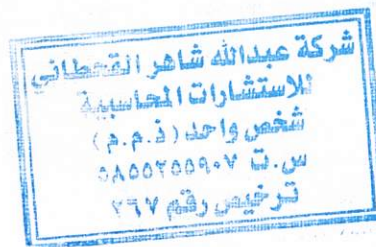 شركة عبدالله شاهر القحطاني
للاستشارات المحاسبية
شخص واحد (ذ.م.م)
س.ت ٥٨٥٥٢٥٥٩٠٧
ترخيص رقم ٢٦٧